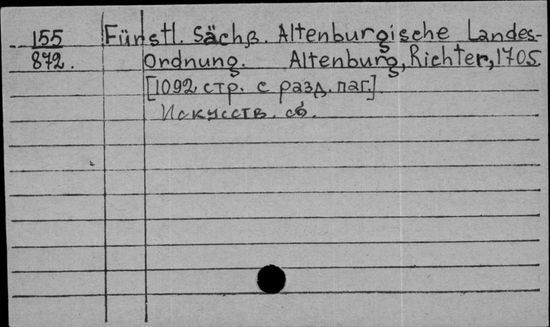 155 Fürstl. Sächß. Altenburgische Landes-
872. Ordnung. Altenburg, Richter, 1705.
[1092 стр. с разд. паг.]
Искусств. сб.